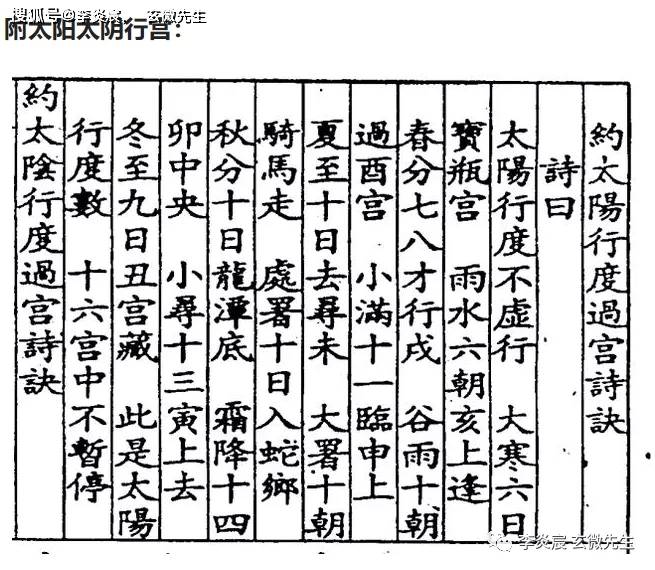 搜狐号@李炎宸——玄微先生
附太阳太阴行宫：
約太陽行度過宮詩訣
詩曰
太陽行度不虛行　大寒六日
寶瓶宮　雨水六朝亥上逢
春分七八才行戌　谷雨十朝
過酉宮　小滿十一臨申上
夏至十日去尋未　大署十朝
騎馬走　處署十日入蛇鄉
秋分十日龍潭底　霜降十四
卯中央　小尋十三寅上去
冬至九日丑宮藏　此是太陽
行度數　十六宮中不暫停
約太陰行度過宮詩訣
李炎宸-玄微先生